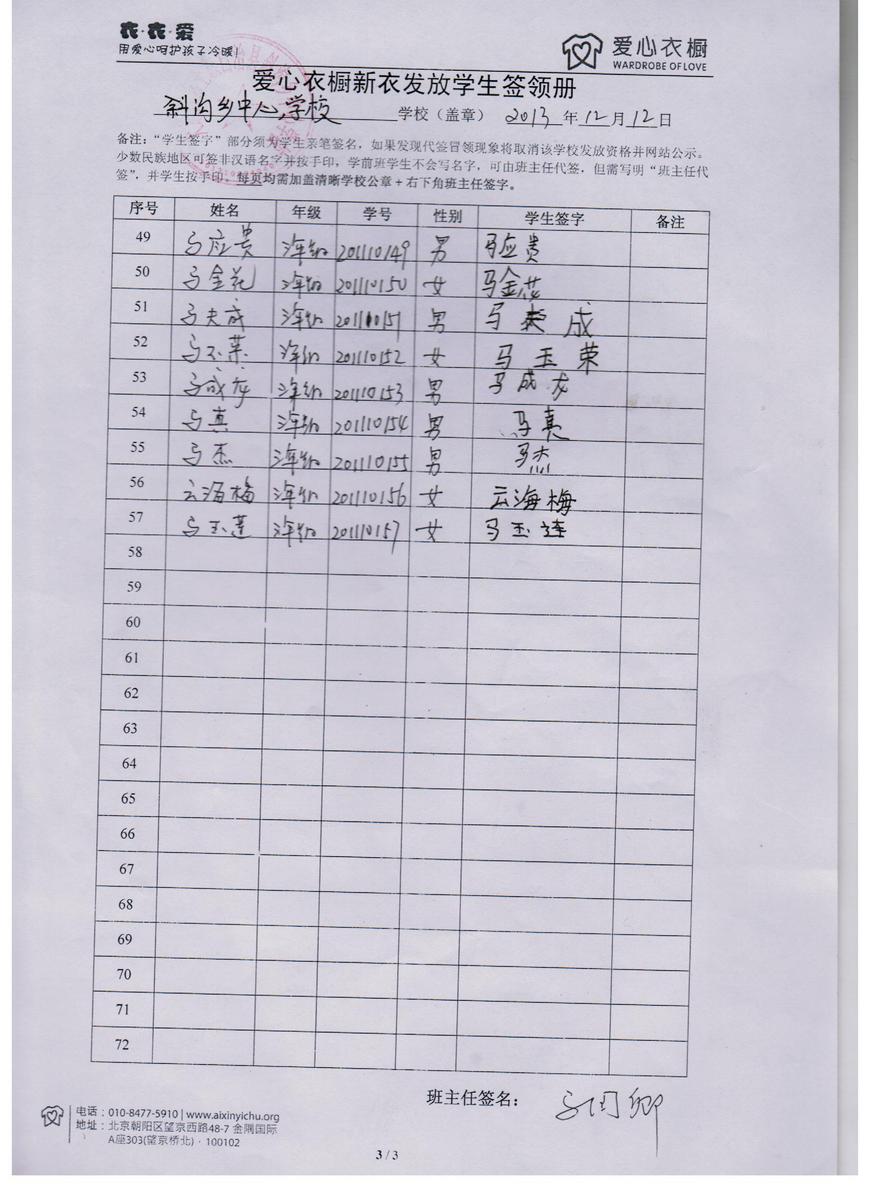 衣·衣·爱
用爱心呵护孩子冷暖!
爱心衣橱
WARDROBE OF LOVE
爱心衣橱新衣发放学生签领册
斜沟乡中心学校 学校（盖章） 2013 年 12 月 12 日
备注：“学生签字”部分须为学生亲笔签名，如果发现代签冒领现象将取消该学校发放资格并网站公示。
少数民族地区可签非汉语名字并按手印，学前班学生不会写名字，可由班主任代签，但需写明“班主任代
签”，并学生按手印。每页均需加盖清晰学校公章+右下角班主任签字。
序号 姓名 年级 学号 性别 学生签字 备注
49 马应贵 年级 201110149 男 马应贵
50 马金花 年级 201110150 女 马金花
51 马夫成 年级 201110151 男 马 成
52 马玉荣 年级 201110152 女 马玉荣
53 马成龙 年级 201110153 男 马成龙
54 马真 年级 201110154 男 马真
55 马杰 年级 201110155 男 马杰
56 云海梅 年级 201110156 女 云海梅
57 马玉莲 年级 201110157 女 马玉连
58
59
60
61
62
63
64
65
66
67
68
69
70
71
72
班主任签名：
电话：010-8477-5910 | www.aixinyichu.org
地址：北京朝阳区望京西路48-7 金隅国际
A座303(望京桥北)·100102
3 / 3